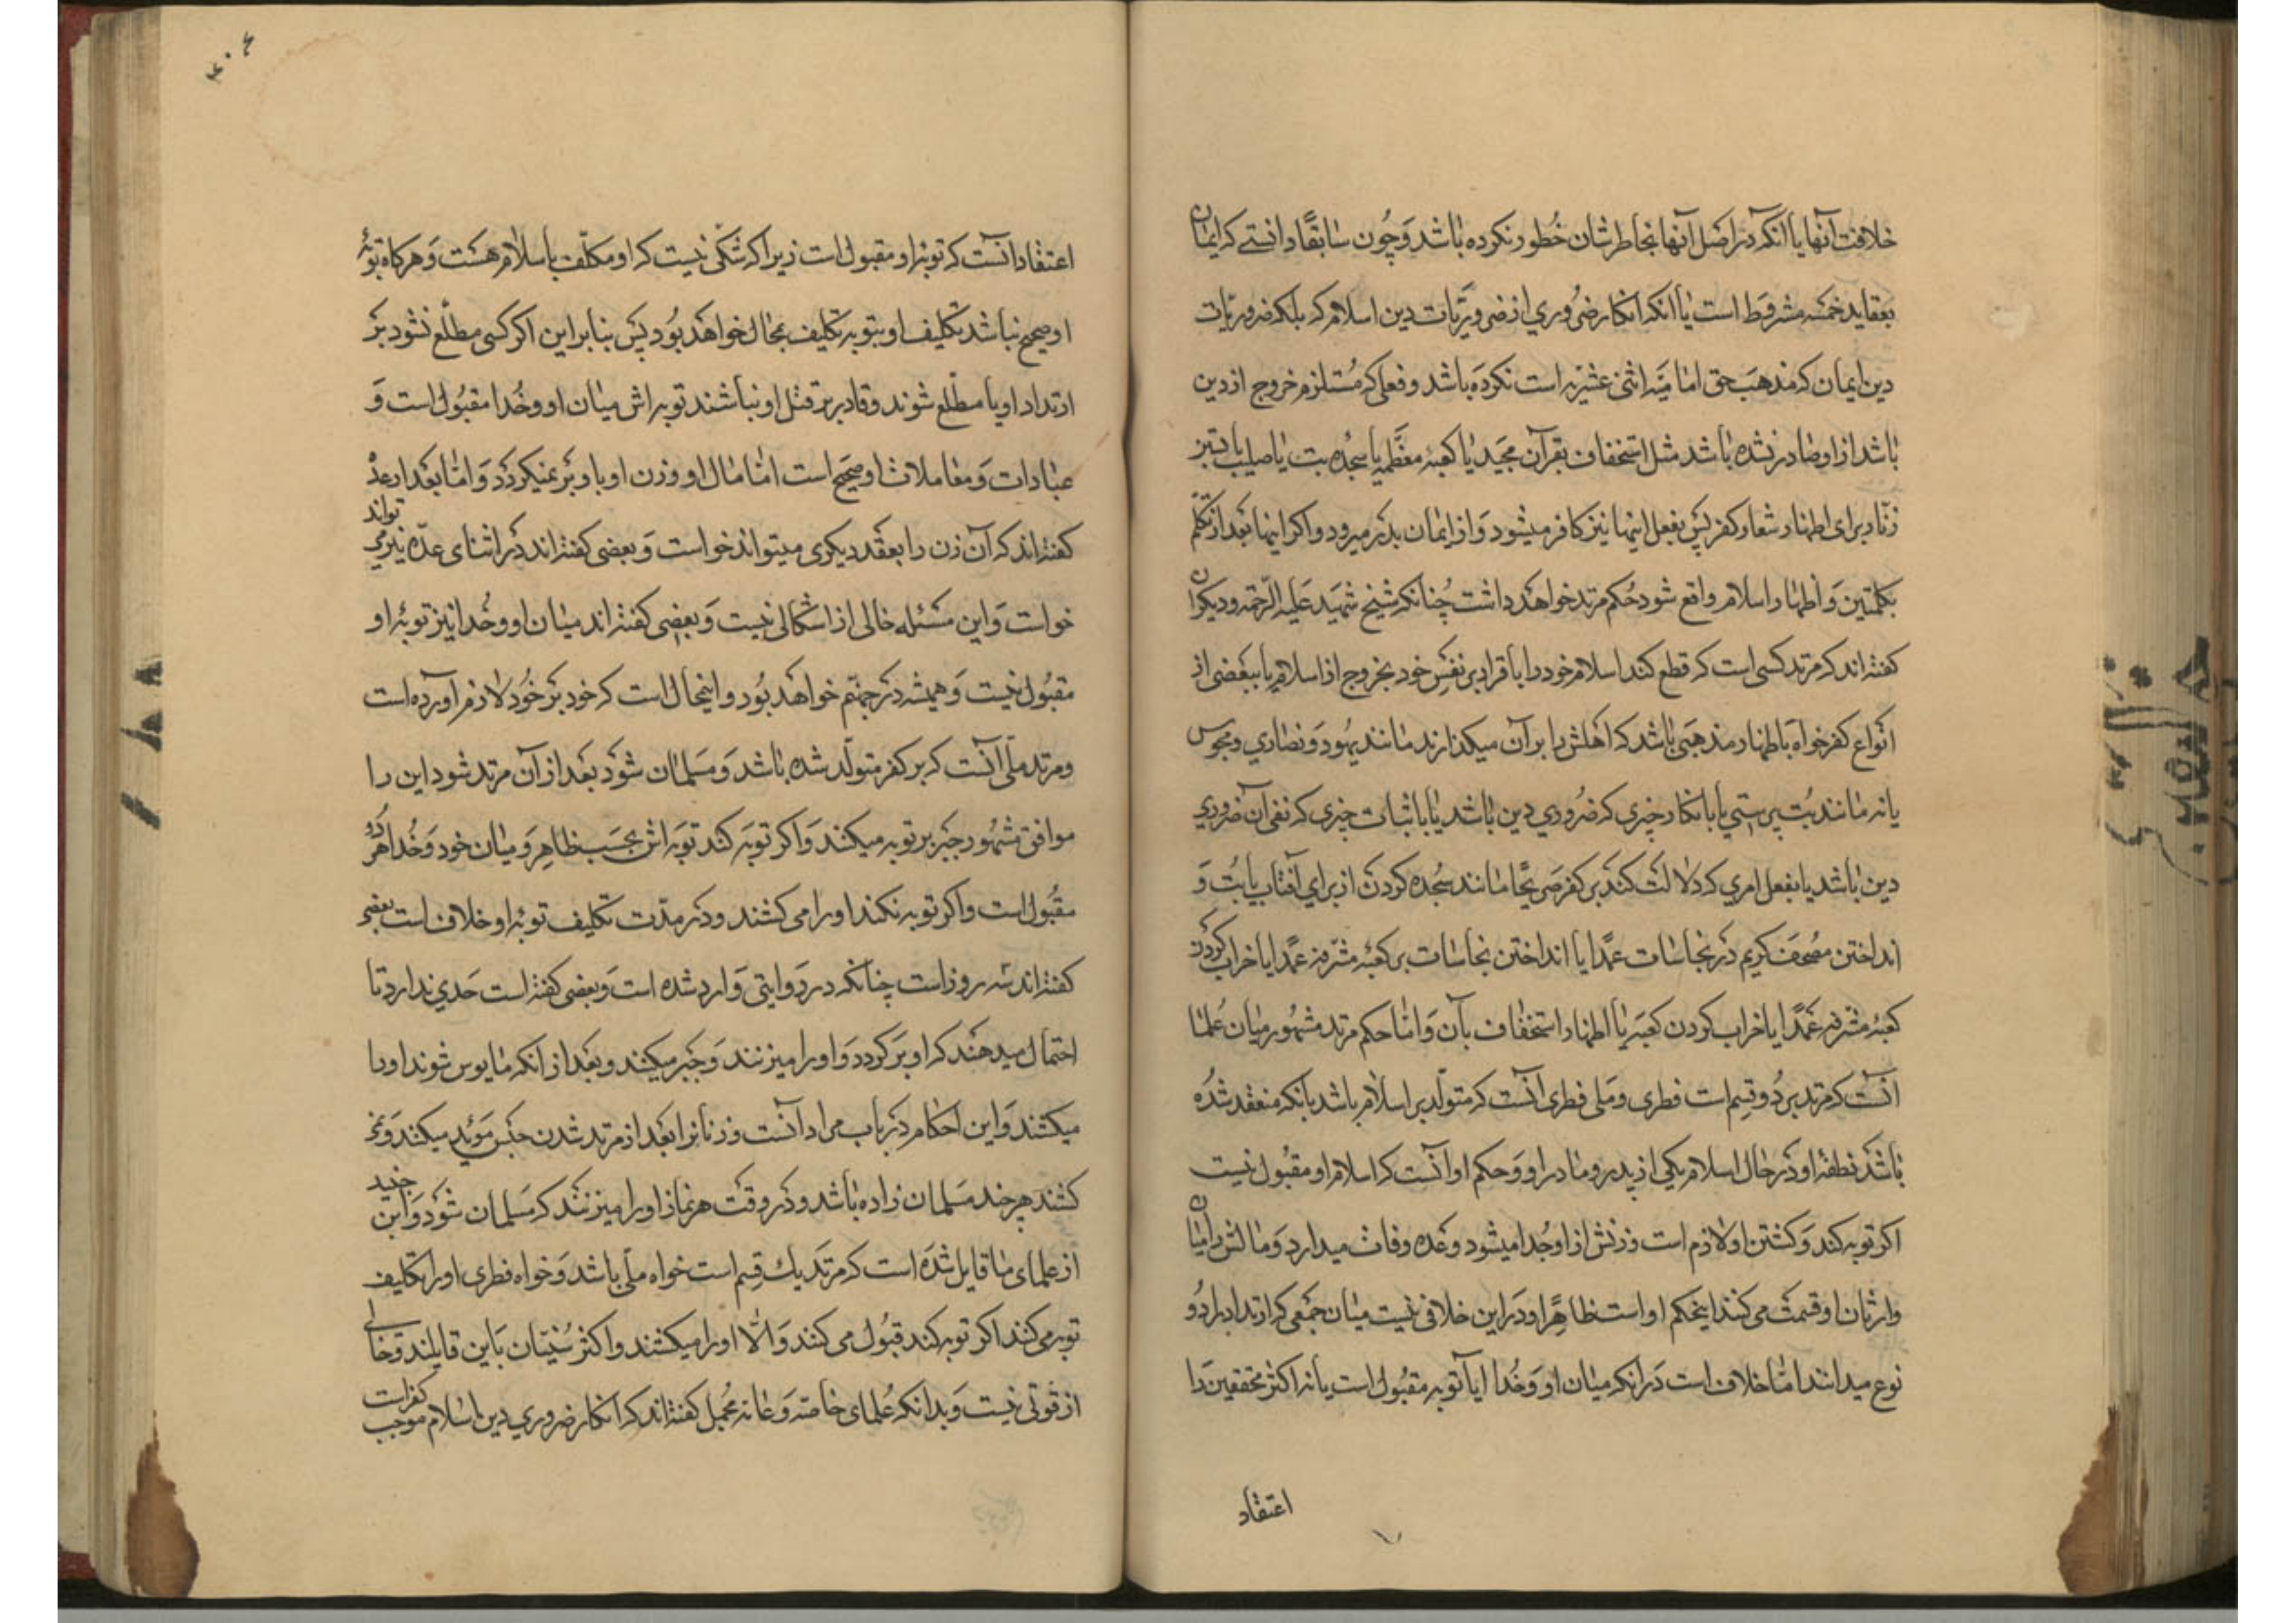 خلافت آنها یا آنکه در اصل آنها بخاطرشان خطور نکرده باشد و چون سابقًا دانستے که ایمان
بعقاید خمسه مشروط است یا آنکه انکار ضروري از ضروریّات دین اسلام که بلکه ضروریات
دین ایمان که مذهب حق امامیّه اثنی عشریّه است نکرده باشد و فعلی که مُستلزم خروج از دین
باشد از او صادر نشده باشد مثل استخفاف بقرآن مجید یا کعبهٔ معظّمه یا سجدهٔ بت یا صلیب یا بستن
زنّار برای اظهار شعار کفر پس بفعل اینها نیز کافر میشود و از ایمان بدر میرود و اگر اینها بعد از تکلّم
بکلمتین و اظهار اسلام واقع شود حُکم مرتد خواهد داشت چُنانکه شیخ شهید علیه الرّحمه و دیگران
گفته‌اند که مرتد کسی است که قطع کند اسلام خود را باقرار بر نفس خود بخروج از اسلام یا ببعضی از
انواع کفر خواه باظهار مذهبی باشد که اهلش را بر آن میگذارند مانند یهود و نصاري و مجوس
یا نه مانند بُت پرستي یا بانکار چیزی که ضروري دین باشد یا باثبات چیزی که نفی آن ضروري
دین باشد یا بفعل امري که دلالت کند بر کفر صریحًا مانند سجده کردن از براي آفتاب یا بُت و
انداختن مُصحف کریم در نجاسات عمدًا یا انداختن نجاسات بر کعبهٔ مشرفه عمدًا یا خراب کردن
کعبهٔ مشرفه عمدًا یا خراب کردن کعبه یا اظهار استخفاف بآن و امّا حکم مرتد مشهور میان عُلما
آنست که مرتد بر دُو قسم است فطری و ملی فطری آنست که متولّد بر اسلام باشد بآنکه منعقد شده
باشد نطفهٔ او در حال اسلام یکی از پدر و مادر او و حکم او آنست که اسلام او مقبول نیست
اگر توبه کند و کشتن او لازم است و زنش از او جُدا میشود و عدهٔ وفات میدارد و مالش را میان
وارثان او قسمت می کنند اینحکم او است ظاهرًا و در این خلافی نیست میان جمعی که ارتداد را دُو
نوع میدانند امّا خلاف است در آنکه میان او و خُدا آیا توبه مقبول است یا نه اکثر محققین را
اعتقاد
۴۰۴
اعتقاد آنست که توبهٔ او مقبول است زیرا که شکّی نیست که او مکلّف باسلام هست و هرگاه توبهٔ
او صحیح نباشد تکلیف او بتوبه تکلیف بمحال خواهد بُود پس بنابراین اگر کسی مطلّع نشود بر
ارتداد او یا مطلّع شوند و قادر بر قتل او نباشند توبه اش میان او و خُدا مقبول است و
عبادات و معاملات او صحیح است امّا مال او و زن او باو بر نمیگردد و امّا بعد از عدّه
گفته‌اند که آن زن را بعقد دیگری میتواند خواست و بعضی گفته‌اند در اثنای عدّه نیز می تواند
خواست و این مسئله خالی از اشکالی نیست و بعضی گفته‌اند میان او و خُدا نیز توبهٔ او
مقبول نیست و همیشه در جهنّم خواهد بُود و اینحال است که خود بر خود لازم آورده است
و مرتد ملّی آنست که بر کفر متولّد شده باشد و مسلمان شود بعد از آن مرتد شود این را
موافق مشهور جبر بر توبه میکنند و اگر توبه کند توبه اش بحسب ظاهر و میان خود و خُدا هر دُو
مقبول است و اگر توبه نکند او را می کشند و در مدّت تکلیف توبهٔ او خلاف است بعضی
گفته‌اند سه روز است چنانکه در روایتی وارد شده است و بعضی گفته است حدي ندارد تا
احتمال میدهند که او برگردد و او را میزنند و جبر میکنند و بعد از آنکه مایوس شوند او را
میکشند و این احکام در باب مردانست و زنانرا بعد از مرتد شدن حبس مؤبد میکنند و نمی
کشند هر چند مسلمان زاده باشد و در وقت هر نماز او را میزنند که مسلمان شود و ابن جنید
از علمای ما قایل شده است که مرتد یك قسم است خواه ملّی باشد و خواه فطری او را تکلیف
توبه می کنند اگر توبه کند قبول می کنند و الّا او را میکشند و اکثر سُنیّان باین قایلند و خالی
از قوّتی نیست و بدانکه عُلمای خاصّه و عامّه مجمل گفته‌اند که انکار ضروري دین اسلام موجب کفر است